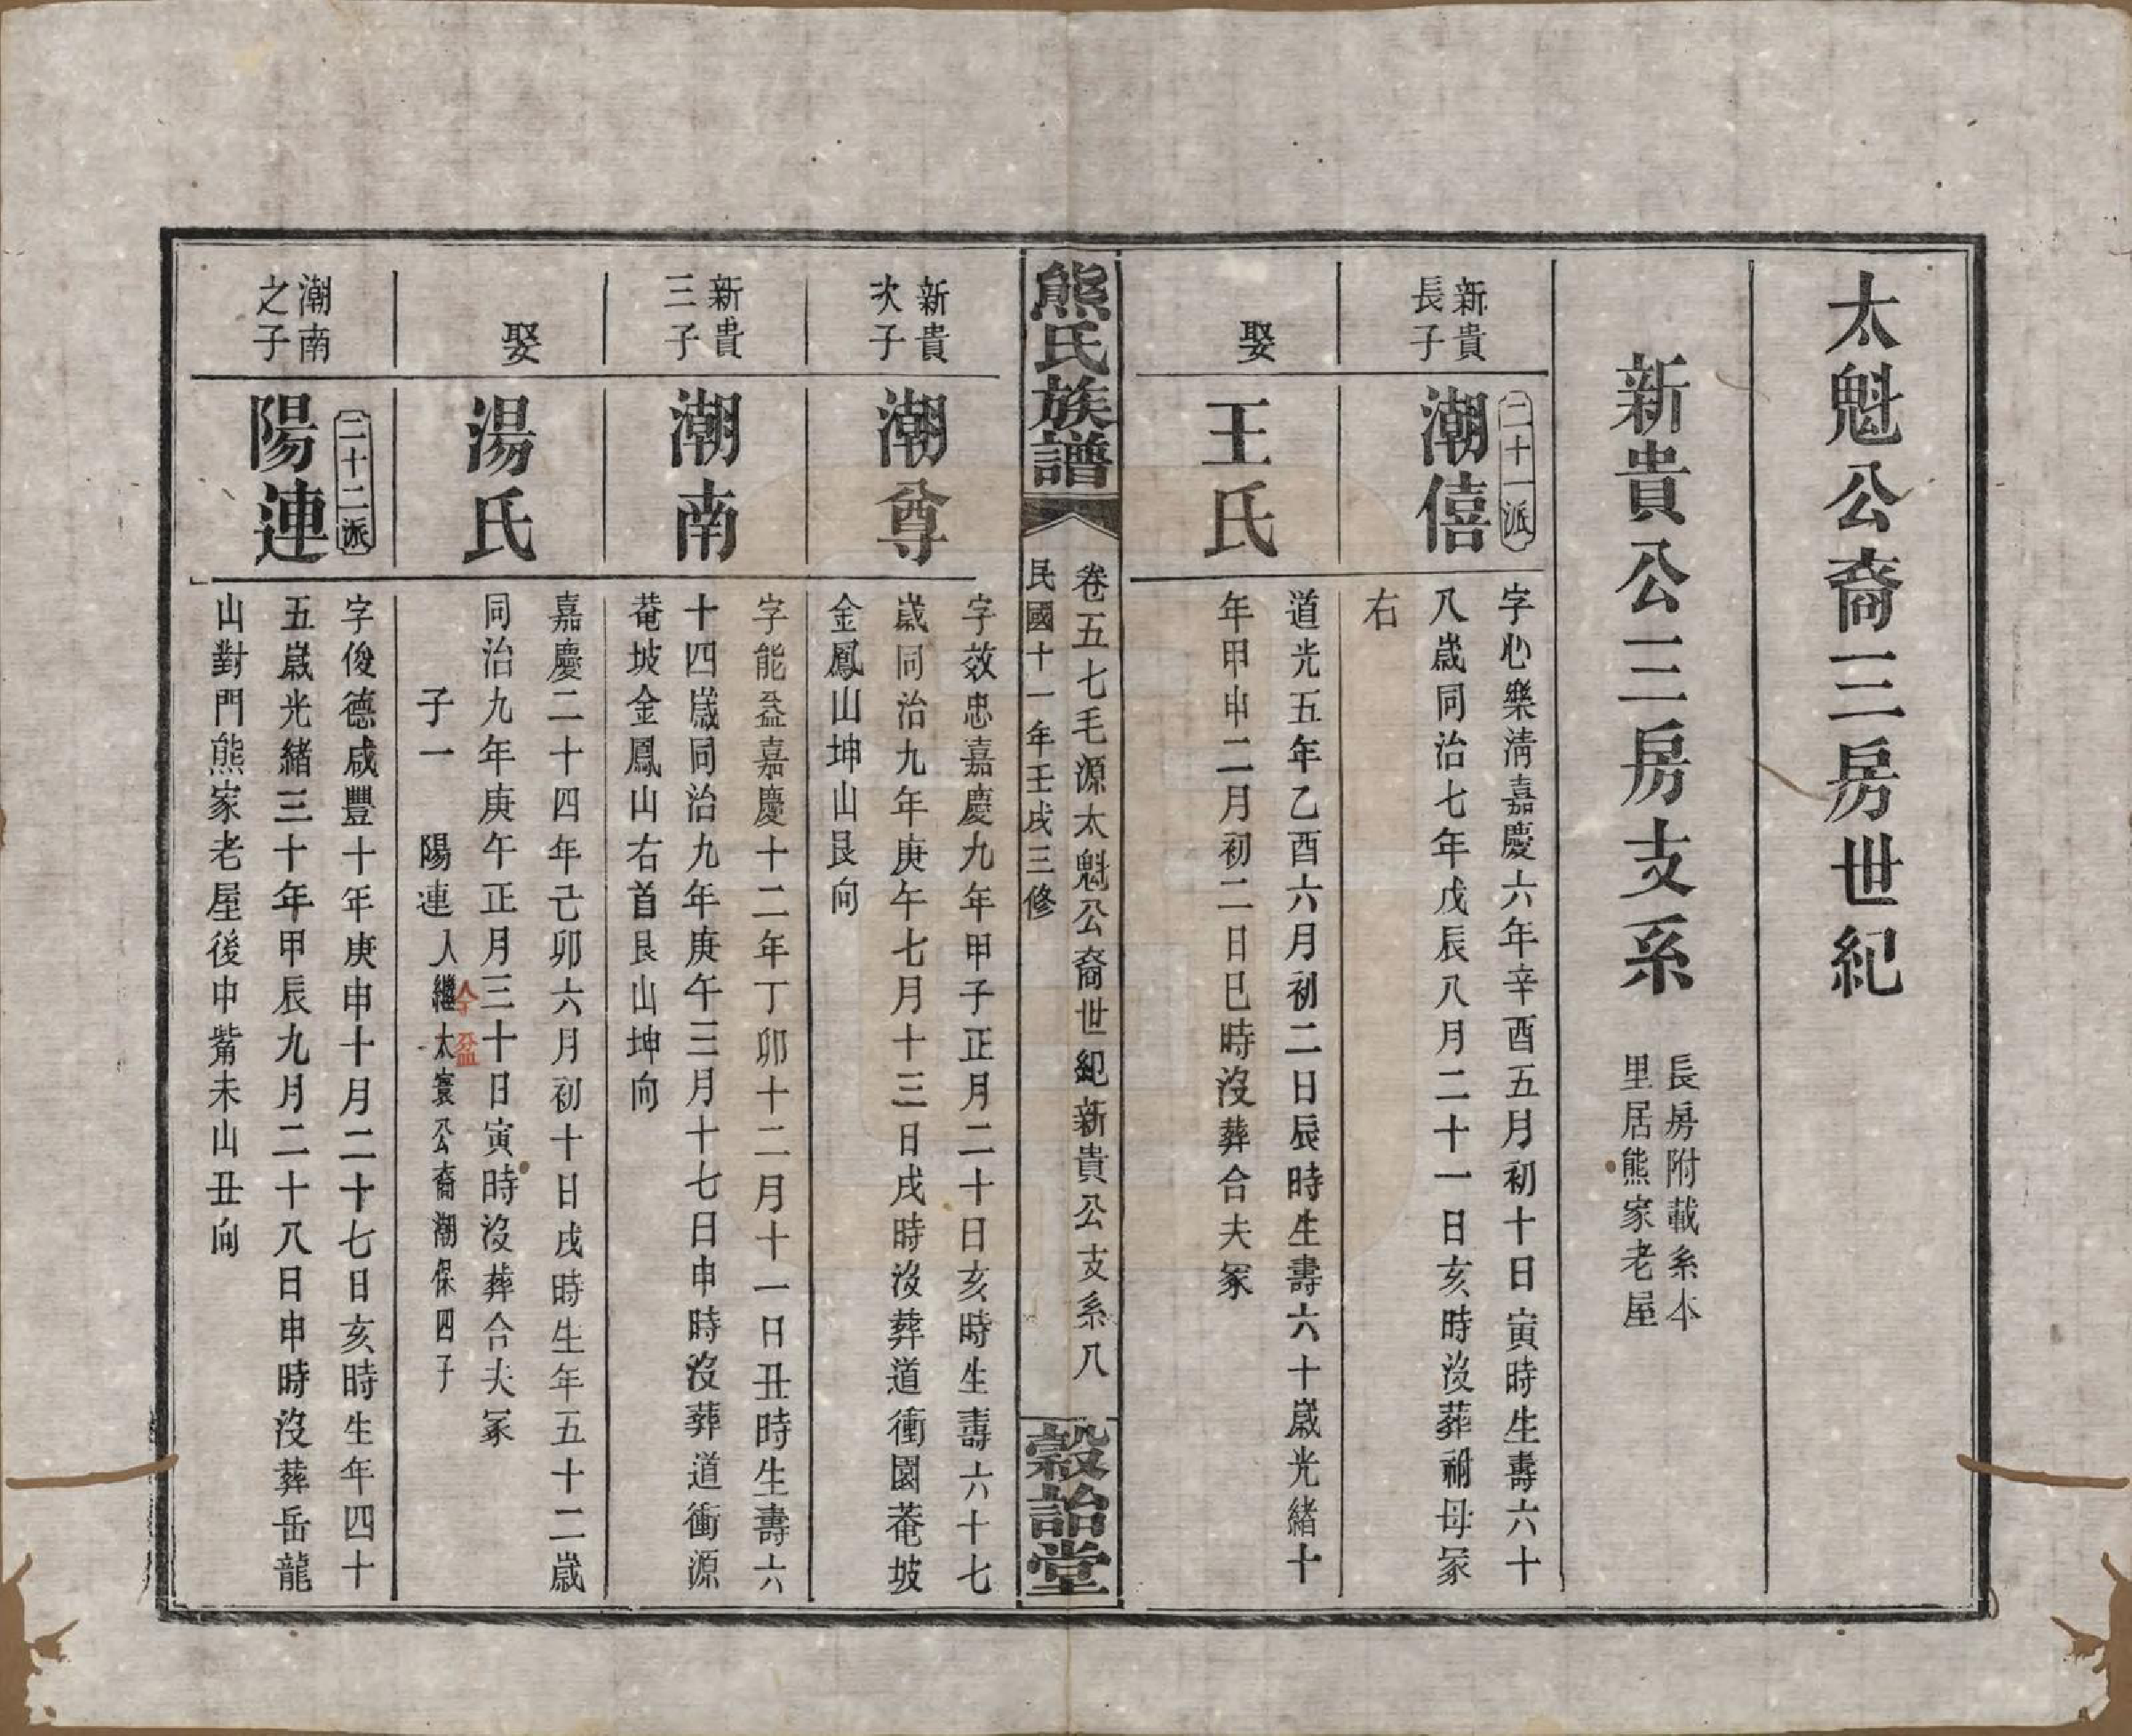 太魁公裔三房世紀
新貴公三房支系
長房附載系本
里居熊家老屋
新貴
長子
二十一派
潮僖
字心樂清嘉慶六年辛酉五月初十日寅時生壽六十
八歲同治七年戊辰八月二十一日亥時沒葬祔母冢
右
娶
王氏
道光五年乙酉六月初二日辰時生壽六十歲光緒十
年甲申二月初二日巳時沒葬合夫冢
熊氏族譜
卷五七毛源太魁公裔世紀新貴公支系八
民國十一年壬戌三修
穀詒堂
新貴
次子
潮尊
字效忠嘉慶九年甲子正月二十日亥時生壽六十七
歲同治九年庚午七月十三日戌時沒葬道衝園菴坡
金鳳山坤山艮向
新貴
三子
潮南
字能益嘉慶十二年丁卯十二月十一日丑時生壽六
十四歲同治九年庚午三月十七日申時沒葬道衝源
菴坡金鳳山右首艮山坤向
娶
湯氏
嘉慶二十四年己卯六月初十日戌時生年五十二歲
同治九年庚午正月三十日寅時沒葬合夫冢
子一 陽連人繼太寰公裔潮保四子
潮南
之子
二十二派
陽連
字俊德咸豐十年庚申十月二十七日亥時生年四十
五歲光緒三十年甲辰九月二十八日申時沒葬岳龍
山對門熊家老屋後申觜未山丑向